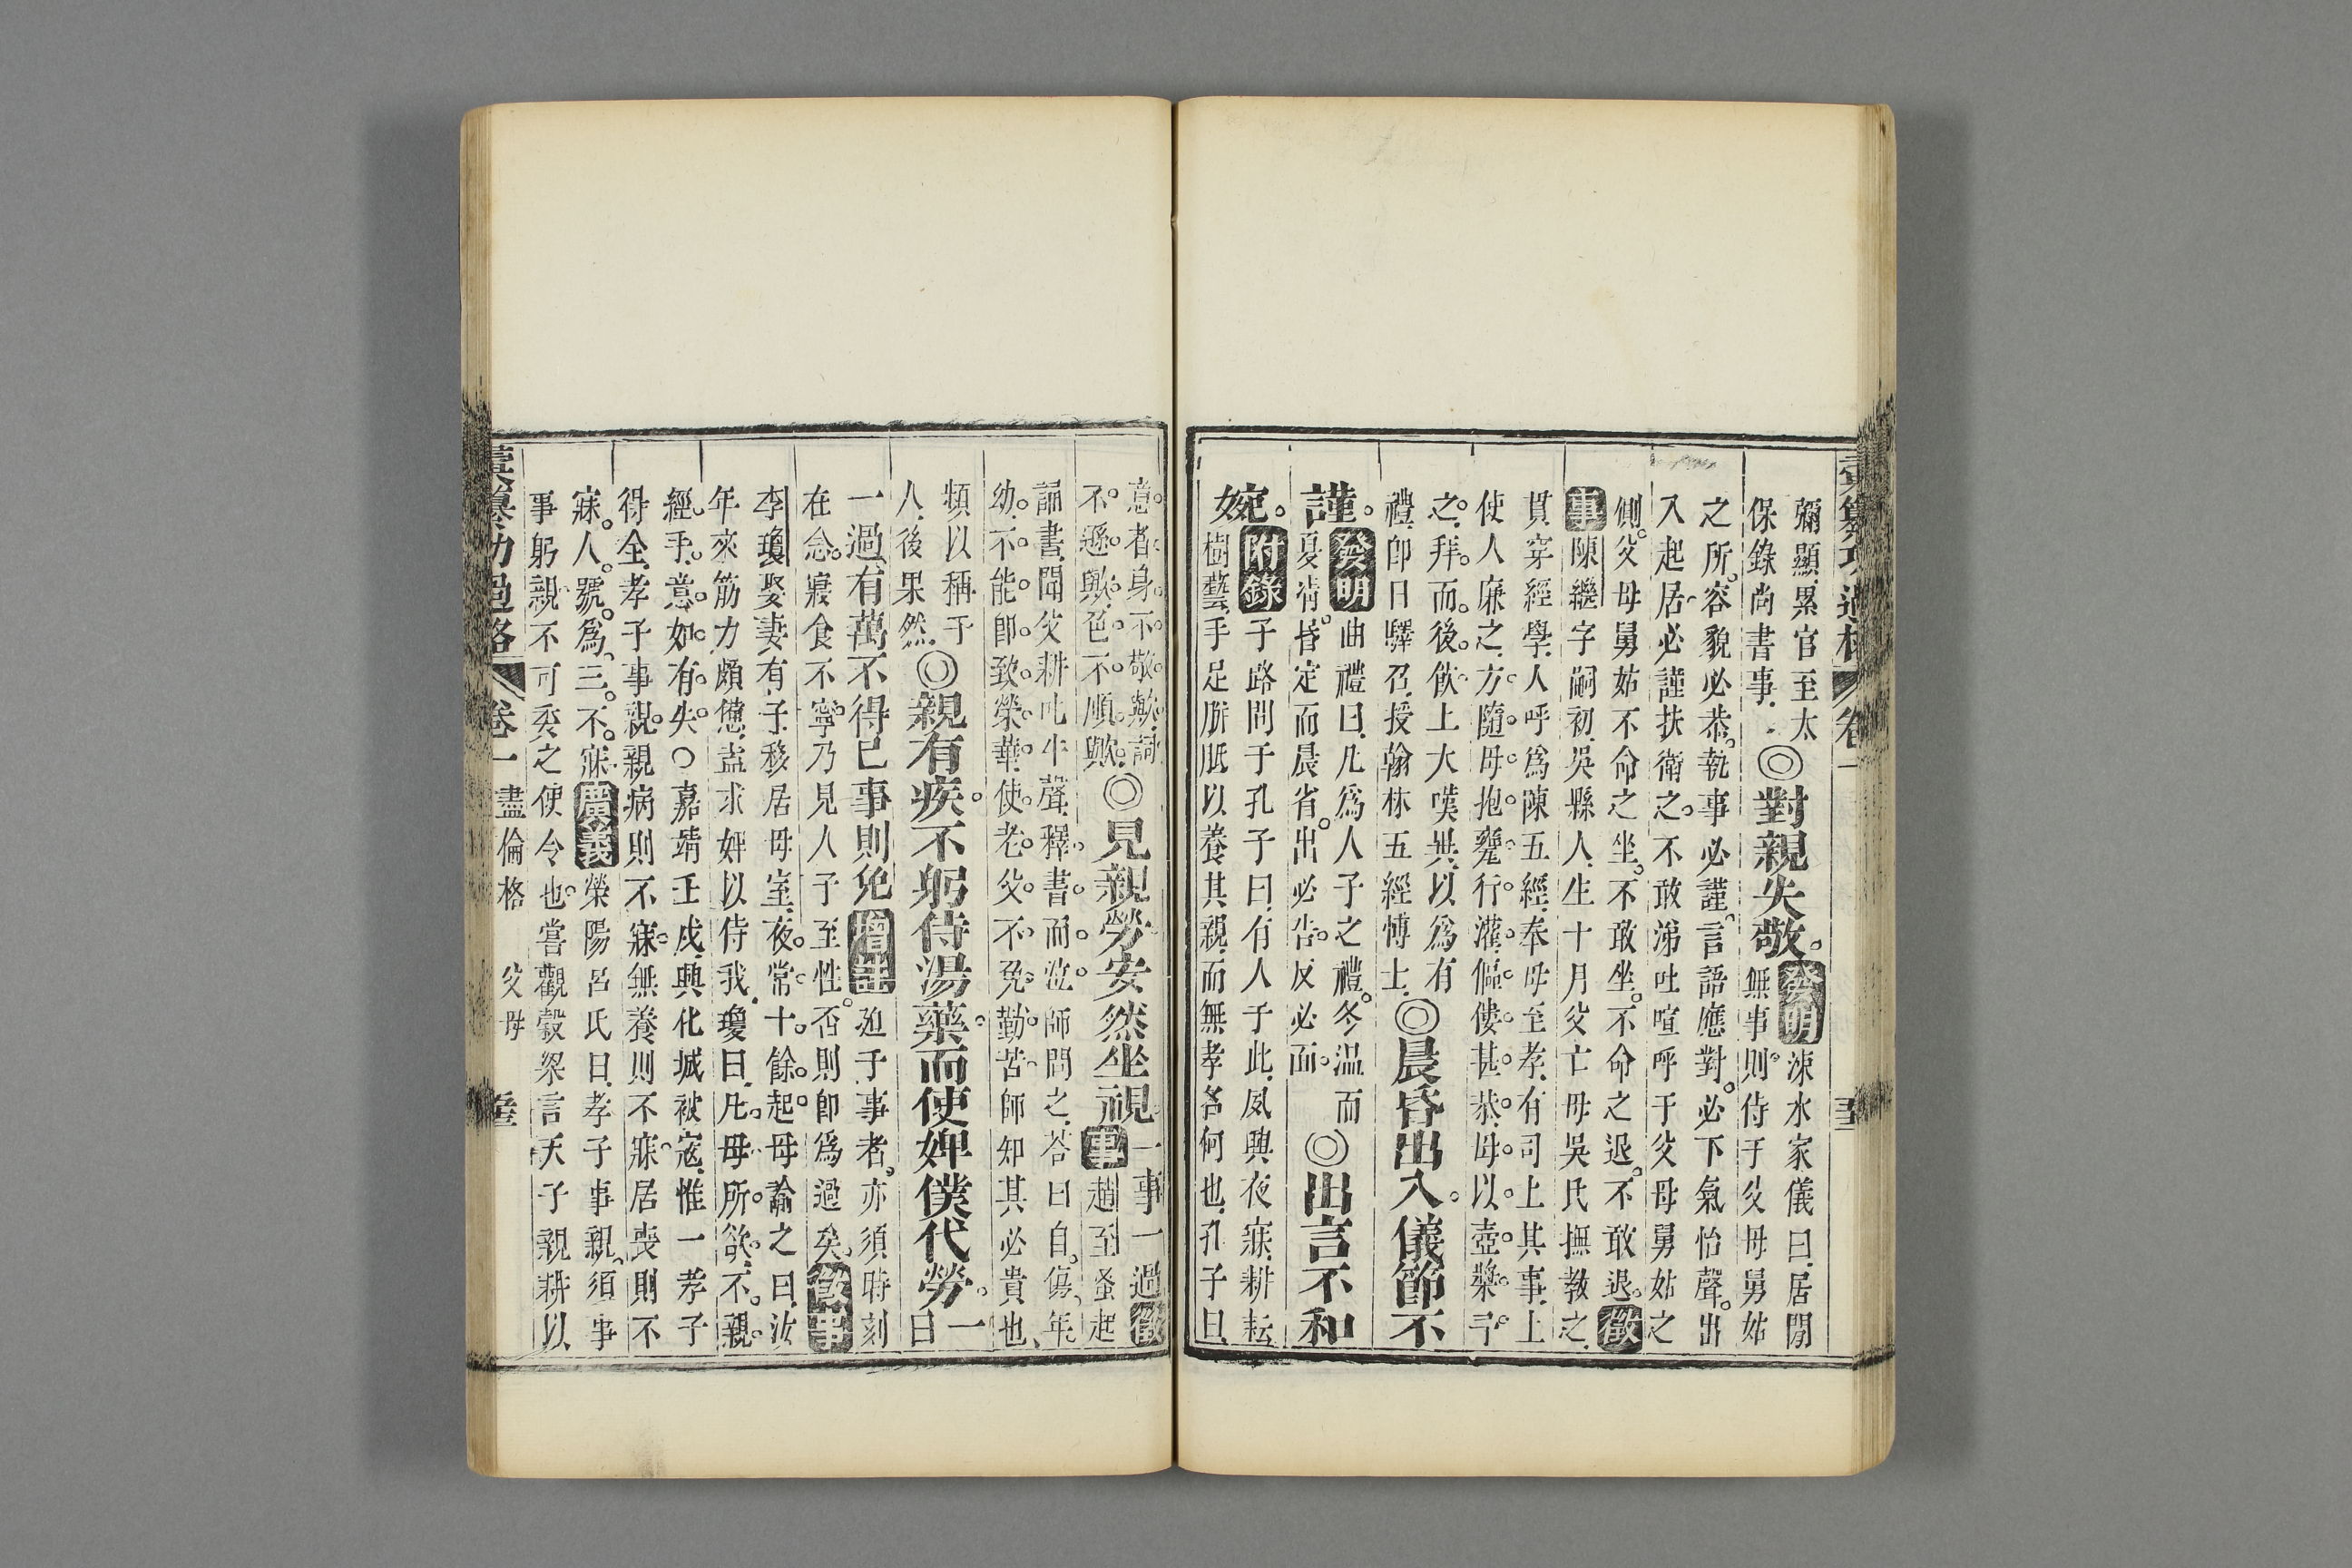 彌顯累官至太
保錄尚書事
◎對親失敬
發明
涑水家儀曰居閒
無事則侍于父母舅姑
之所容貌必恭執事必謹言語應對必下氣怡聲出
入起居必謹扶衛之不敢涕吐喧呼于父母舅姑之
側父母舅姑不命之坐不敢坐不命之退不敢退徵
事陳繼字嗣初吳縣人生十月父亡母吳氏撫教之
貫穿經學人呼為陳五經奉母至孝有司上其事上
使人廉之方隨母抱甕行灌傴僂甚恭母以壺漿予
之拜而後飲上大嘆異以為有
禮卽日驛召授翰林五經博士
◎晨昏出入儀節不
謹
發明
曲禮曰凡為人子之禮冬温而
夏凊昏定而晨省出必告反必面
◎出言不和
婉
附錄
子路問于孔子曰有人子此夙興夜寐耕耘
樹藝手足胼胝以養其親而無孝名何也孔子曰
意者身不敬歟詞
不遜歟色不順歟
◎見親勞安然坐視
一事一過徵
事趙至蚤起
誦書聞父耕叱牛聲釋書而泣師問之荅曰自傷年
幼不能卽致榮華使老父不免勤苦師知其必貴也
頻以稱于
人後果然
◎親有疾不躬侍湯藥而使婢僕代勞
一日
一過有萬不得已事則免
增註
廹于事者亦須時刻
在念寢食不寧乃見人子至性否則卽為過矣
徵事
李瓊娶妻有子移居母室夜常十餘起母諭之曰汝
年來筋力頗憊盍求婢以侍我瓊曰凡母所欲不親
經手意如有失○嘉靖壬戌興化城被寇惟一孝子
得全孝子事親親病則不寐無養則不寐居喪則不
寐人號為三不寐
廣義
滎陽呂氏曰孝子事親須事
事躬親不可委之使令也嘗觀穀梁言天子親耕以
彙纂功過格 卷一 盡倫格 父母